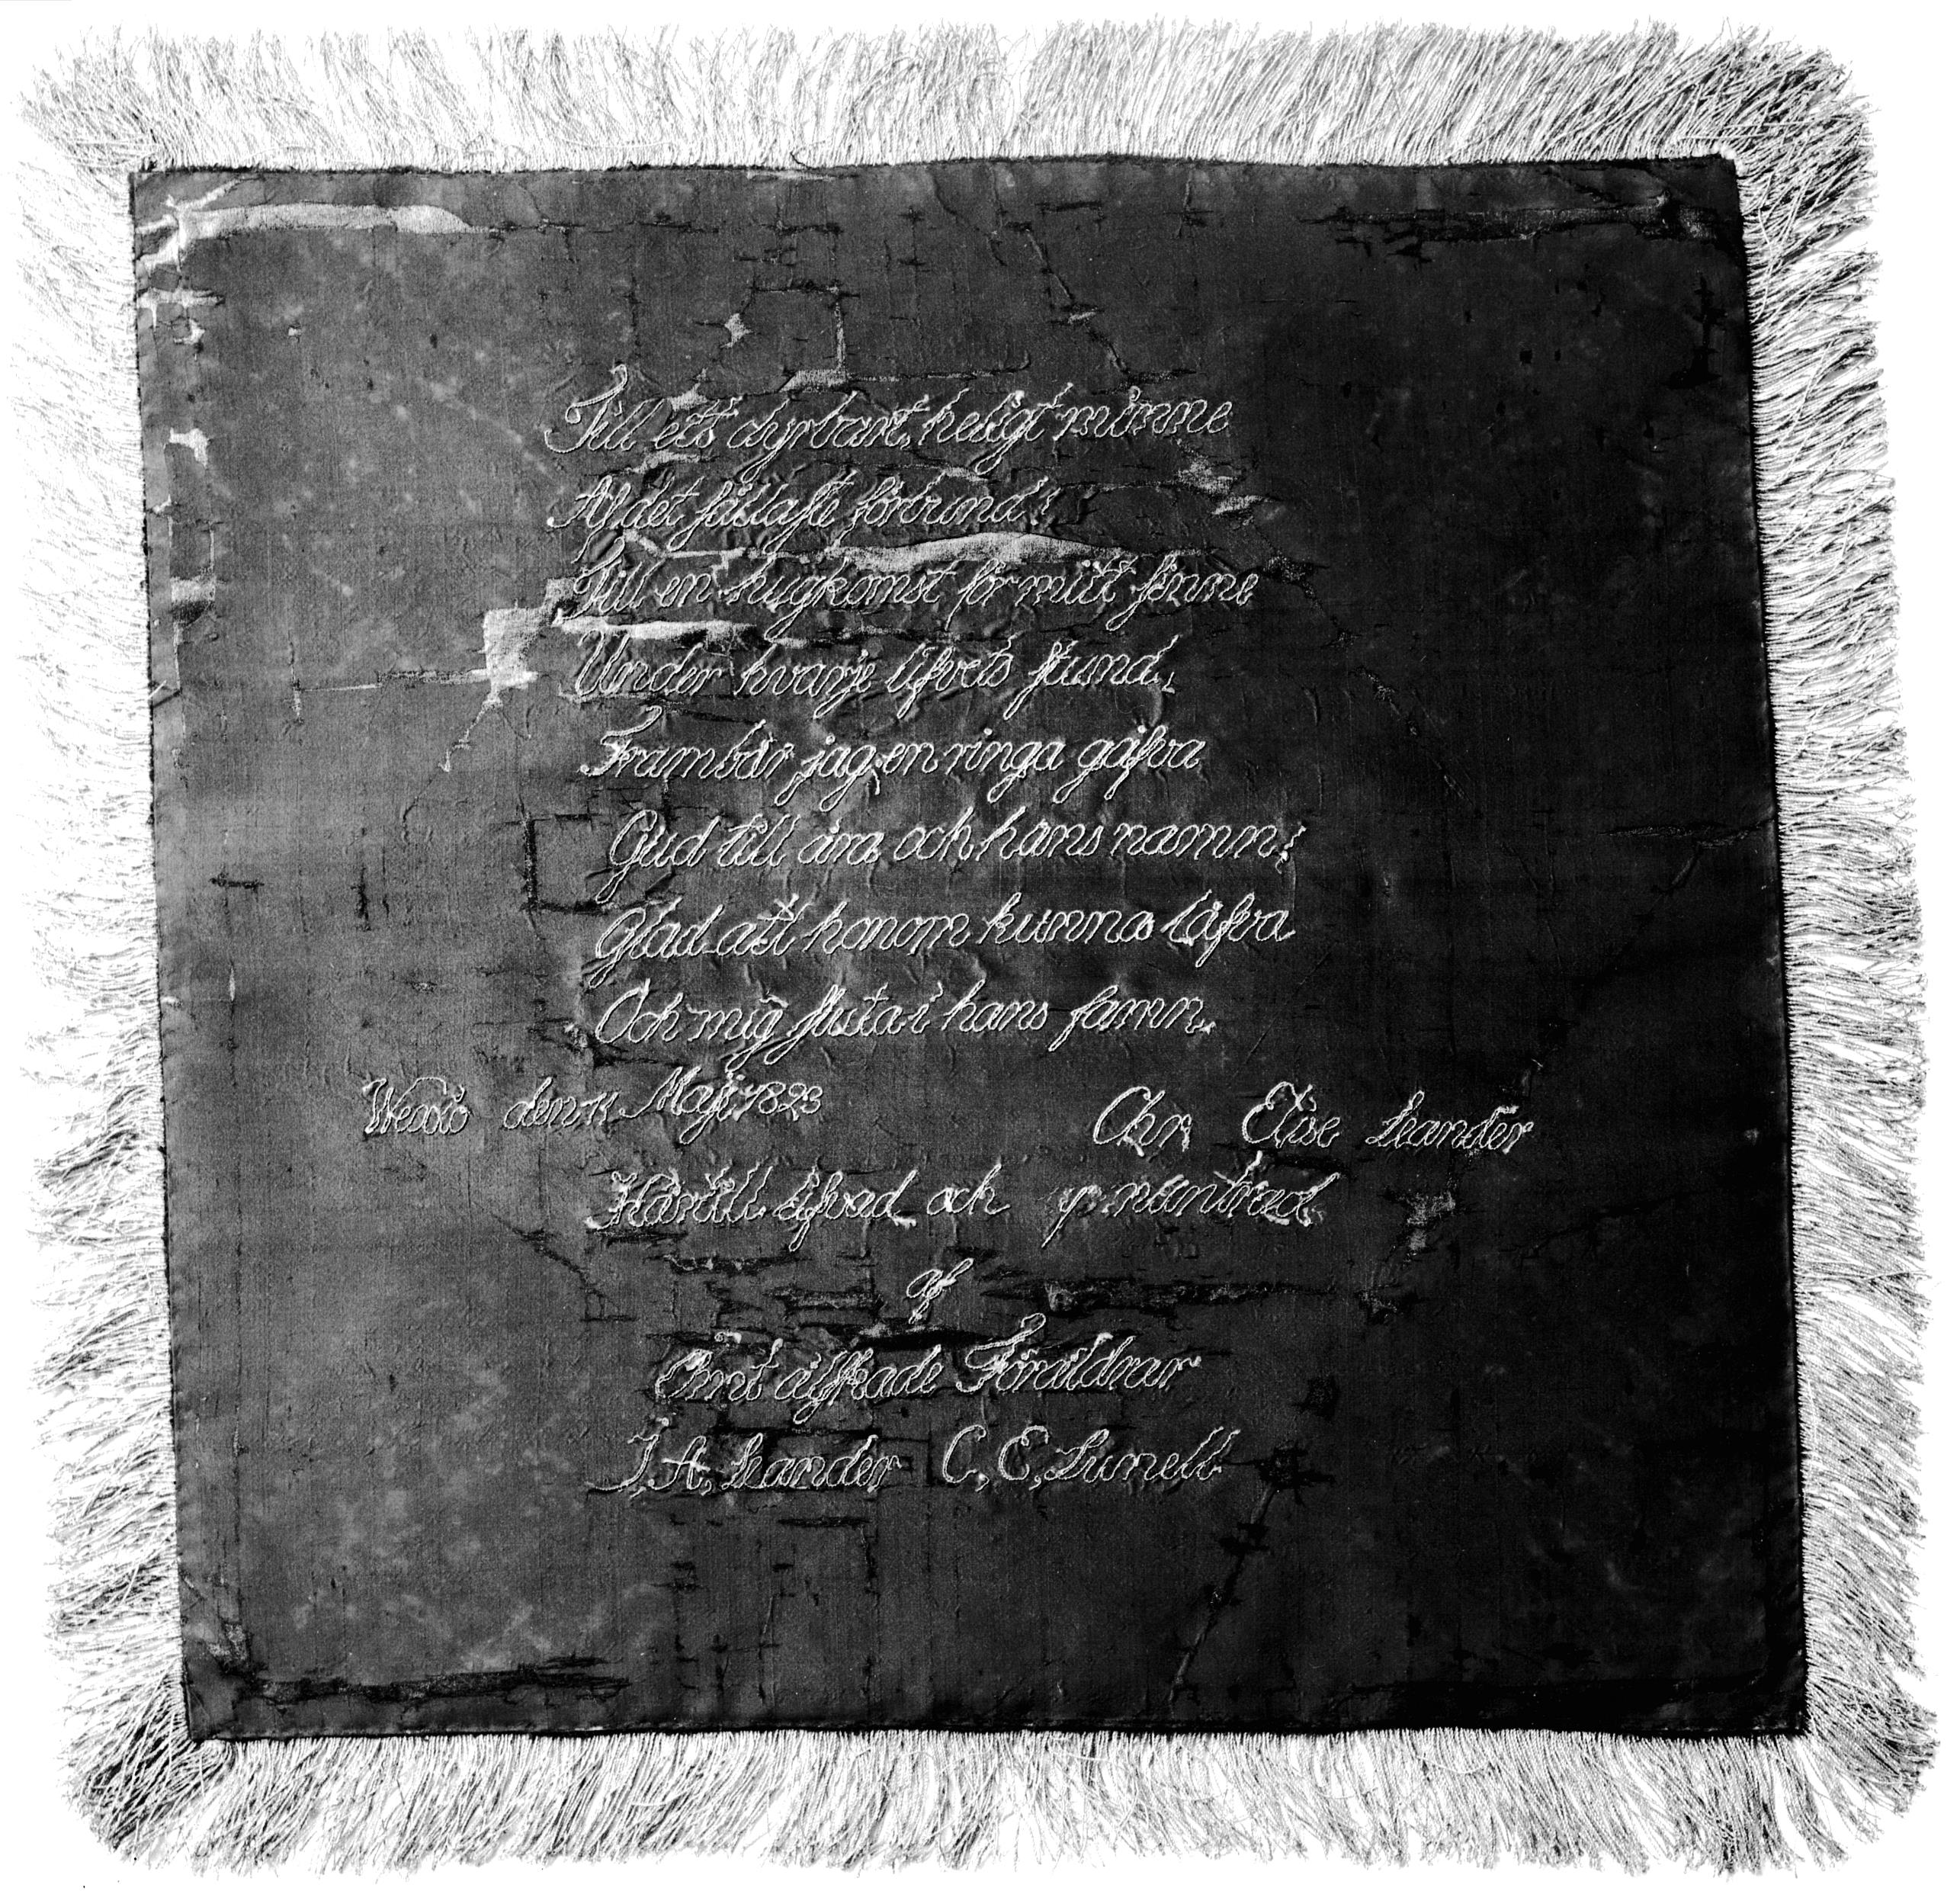 Till ett dyrbart, heligt minne
Af det sällaste förbund!
Till en hugkomst för mitt sinne
Under hvarje lifvets stund,
Frambär jag en ringa gåfva
Gud till ära och hans namn;
Glad att honom kunna låfva
Och mig sluta i hans famn.
Wexiö den 11 Maji 1823 Chr Elise Leander
Härtill lifvad och
af
Ömt älskade Föräldrar
J. A. Leander C. E. Lunell